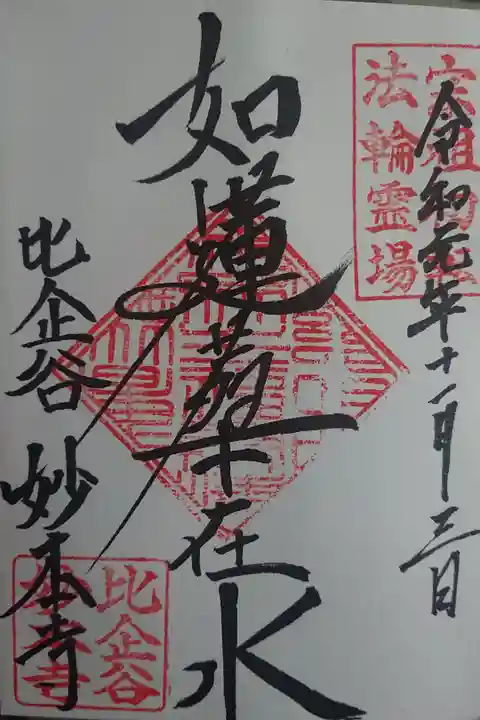 令和元年十一月三日
宗祖御
法輪霊場
如蓮華在水
比企谷 妙本寺
比企谷
妙本寺